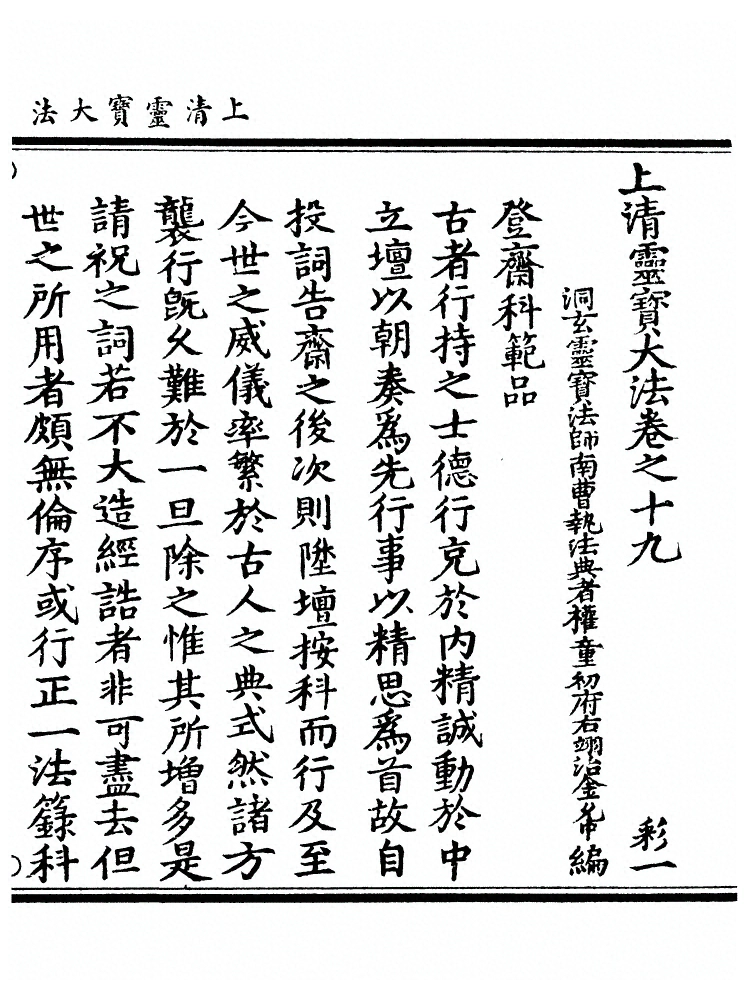 上清靈寶大法
上清靈寶大法卷之十九 彩一
洞玄靈寶法師南曹執法典者權童初府右翊治金允中編
登齋科範品
古者行持之士德行充於內精誠動於中
立壇以朝奏爲先行事以精思爲首故自
投詞告齋之後次則陞壇按科而行及至
今世之威儀率繁於古人之典式然諸方
襲行旣久難於一旦除之惟其所增多是
請祝之詞若不大造經誥者非可盡去但
世之所用者頗無倫序或行正一法籙科